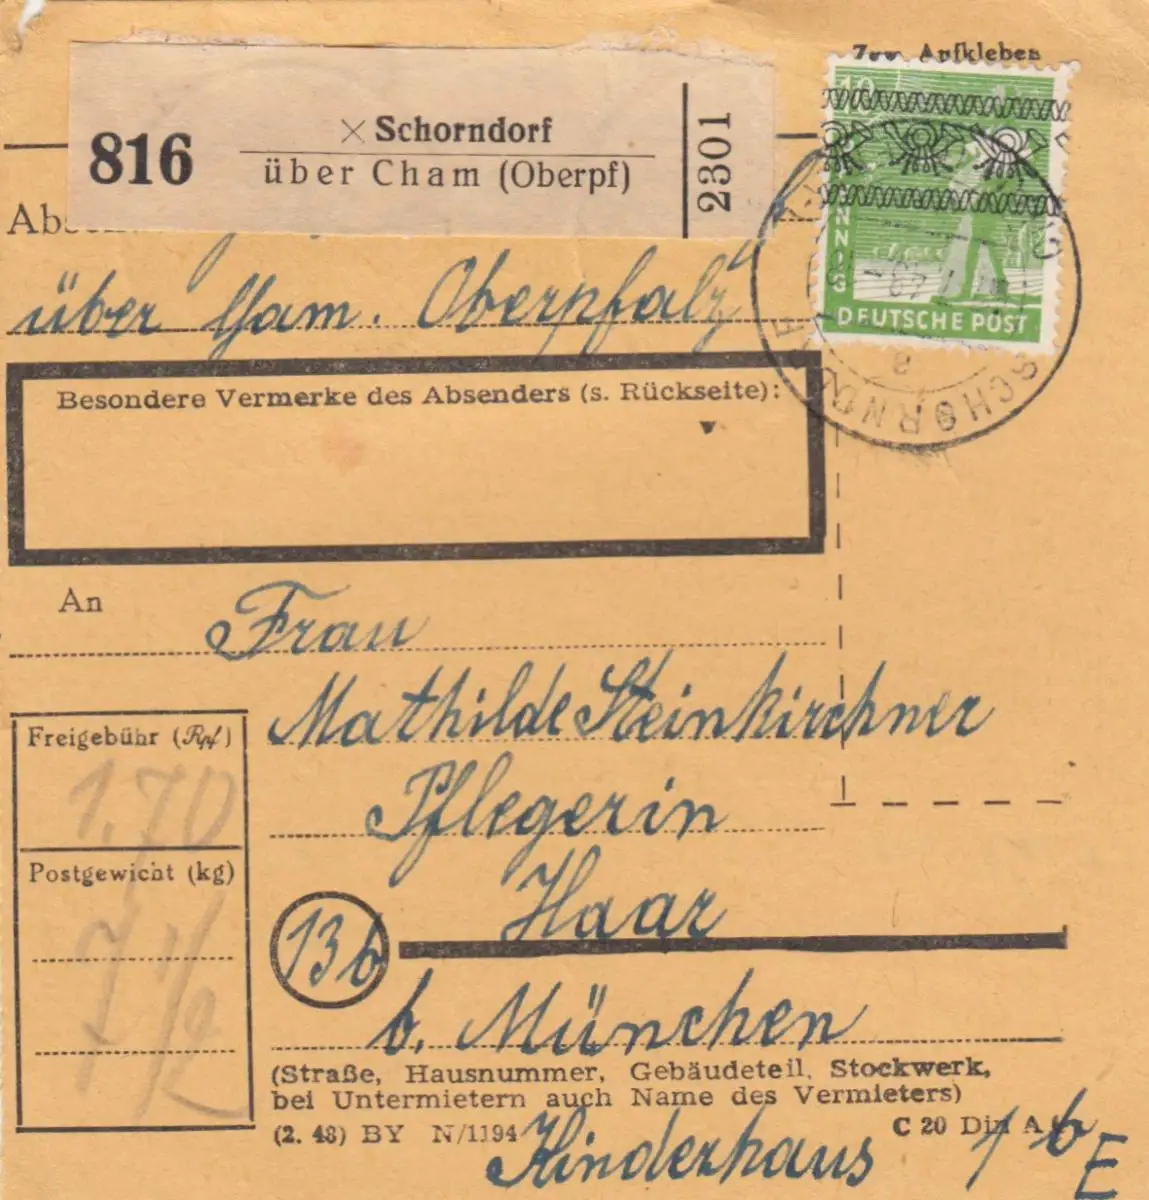 Zum Aufkleben
816
× Schorndorf
über Cham (Oberpf)
2301
10
PFENNIG
DEUTSCHE POST
SCHORNDORF
a
über Cham. Oberpfalz
Besondere Vermerke des Absenders (s. Rückseite):
An
Frau
Mathilde Steinkirchner
Pflegerin
Haar
13b
b. München
Freigebühr (Rpf)
1.70
Postgewicht (kg)
7 1/2
(Straße, Hausnummer, Gebäudeteil, Stockwerk,
bei Untermietern auch Name des Vermieters)
(2. 48) BY N/1194
C 20 Din A
Kinderhaus 1 b
E